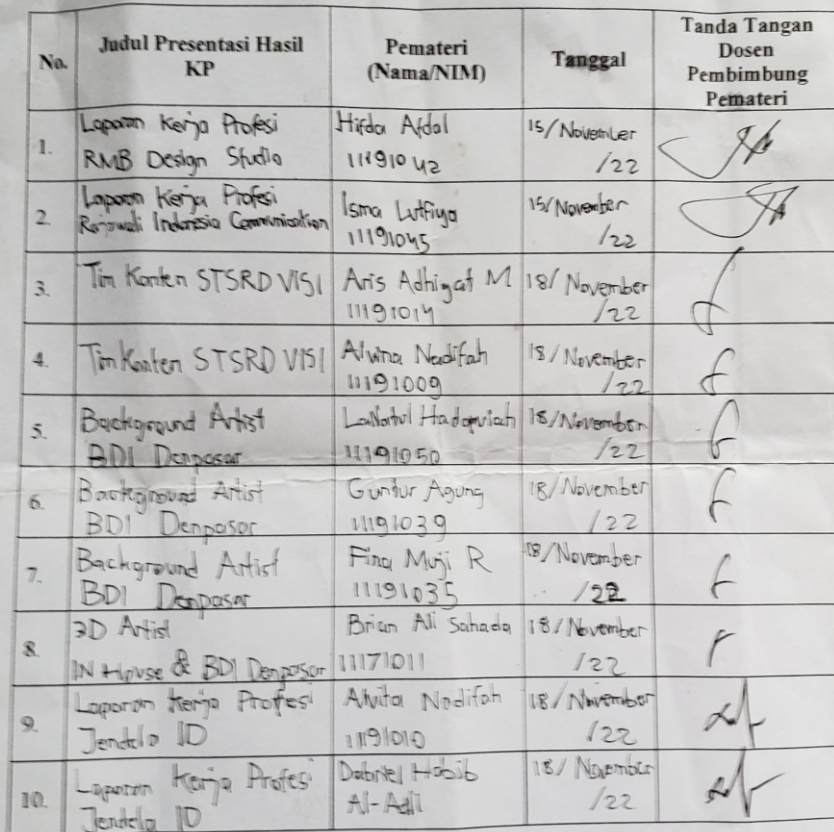 No.
Judul Presentasi Hasil
KP
Pemateri
(Nama/NIM)
Tanggal
Tanda Tangan
Dosen
Pembimbung
Pemateri
1.
Laporan Kerja Profesi
RMB Design Studio
Hifda Afdal
11191042
15/November
/22
2.
Laporan Kerja Profesi
Rajawali Indonesia Communication
Isma Lutfiya
11191045
15/November
/22
3.
Tim Konten STSRD VISI
Aris Adhigaf M
11191014
18/November
/22
4.
Tim Konten STSRD VISI
Alvina Nadifah
11191009
18/November
/22
5.
Background Artist
BDI Denpasar
11191050
18/November
/22
6.
Background Artist
BDI Denpasar
Guntur Agung
11191039
18/November
/22
7.
Background Artist
BDI Denpasar
Fina Muji R
11191035
18/November
/22
8.
3D Artist
IN House & BDI Denpasar
Brian Ali Sahada
11171011
18/November
/22
9.
Laporan Kerja Profesi
Jendela ID
Alvita Nadifah
11191010
18/November
/22
10.
Laporan Kerja Profesi
Jendela ID
Habib
Al-Adli
18/November
/22